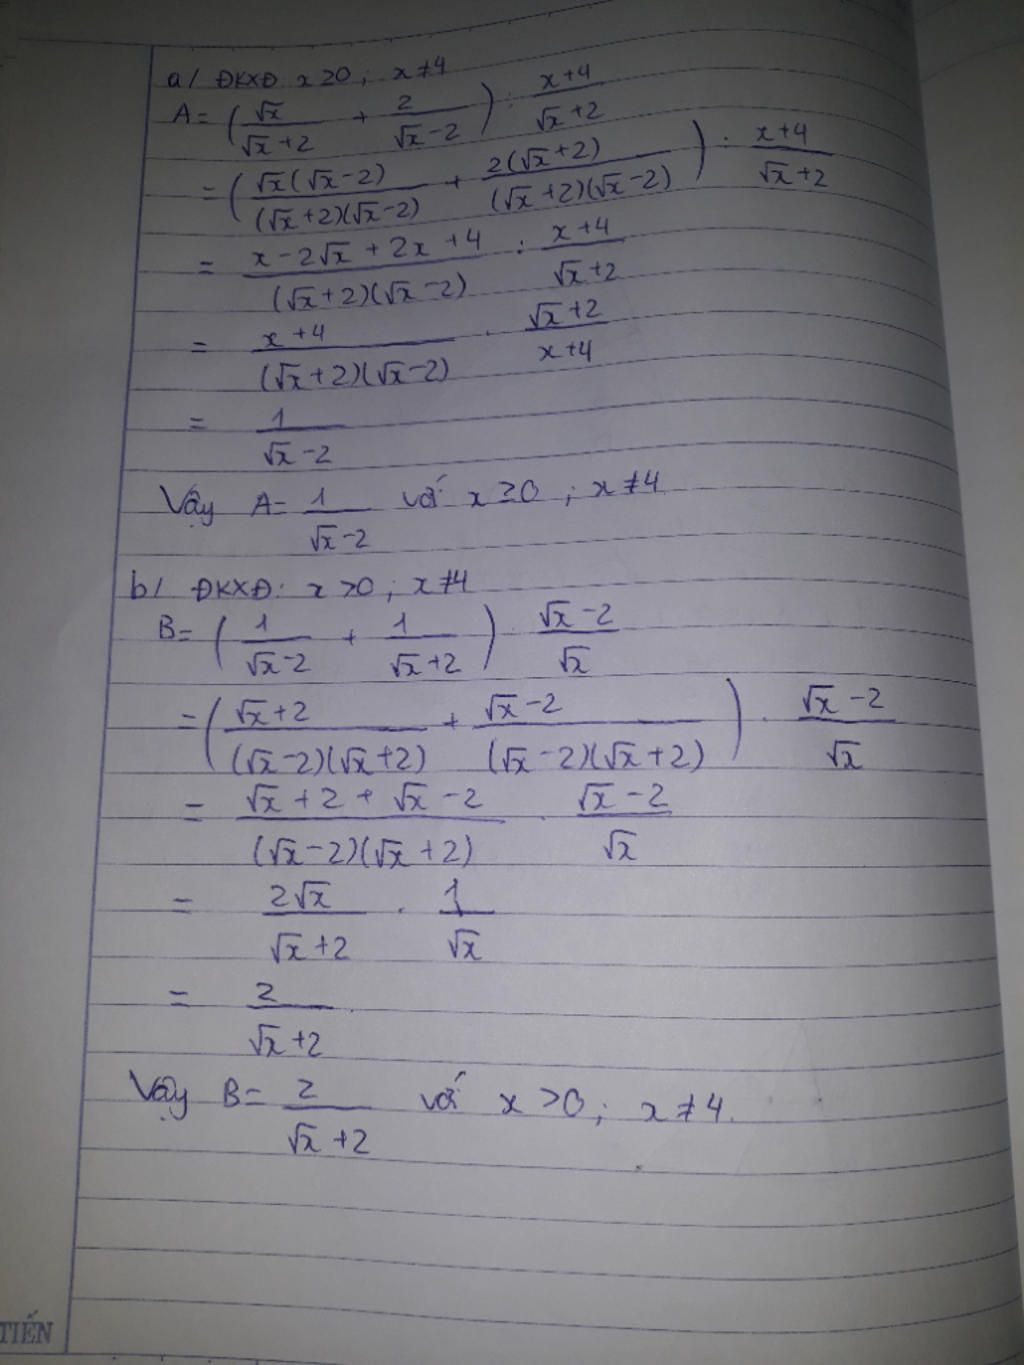 a/ ĐKXĐ: x ≥ 0 ; x ≠ 4
A = (√x/(√x+2) + 2/(√x-2)) : (x+4)/(√x+2)
= (√x(√x-2)/((√x+2)(√x-2)) + 2(√x+2)/((√x+2)(√x-2))) : (x+4)/(√x+2)
= (x-2√x+2x+4)/((√x+2)(√x-2)) : (x+4)/(√x+2)
= (x+4)/((√x+2)(√x-2)) . (√x+2)/(x+4)
= 1/(√x-2)
Vậy A = 1/(√x-2) với x ≥ 0 ; x ≠ 4
b/ ĐKXĐ: x > 0 ; x ≠ 4
B = (1/(√x-2) + 1/(√x+2)) . (√x-2)/√x
= ((√x+2)/((√x-2)(√x+2)) + (√x-2)/((√x-2)(√x+2))) . (√x-2)/√x
= (√x+2+√x-2)/((√x-2)(√x+2)) . (√x-2)/√x
= 2√x/(√x+2) . 1/√x
= 2/(√x+2)
Vậy B = 2/(√x+2) với x > 0 ; x ≠ 4.
TIẾN